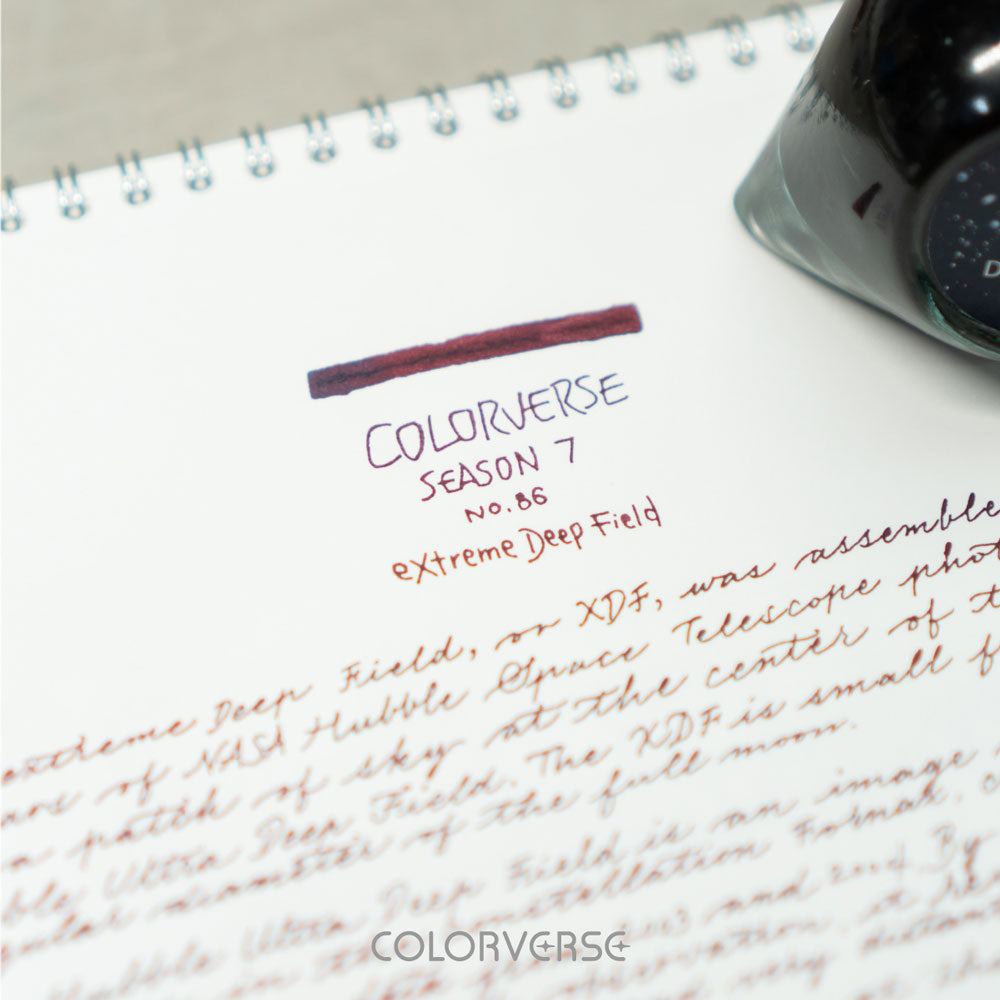 COLORVERSE
SEASON 7
NO.86
eXtreme Deep Field
extreme Deep Field, or XDF, was assemble
of NASA Hubble Space Telescope phot
a patch of sky at the center of t
ble Ultra Deep Field. The XDF is small f
gular diameter of the full moon.
Hubble Ultra Deep Field is an image
constellation Fornax,
2003 and 2004. By
observation,
very distant
D
COLORVERSE